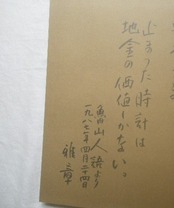 止まった時計は
地金の価値しかない。
魚山人
一九八七年四月二十四日
雅章